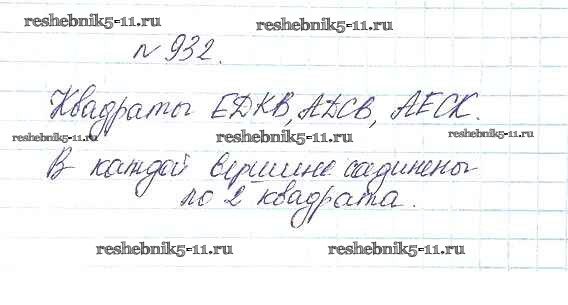 reshebnik5-11.ru reshebnik5-11.ru
№ 932.
Квадраты EDKB, ADCB, AECK.
reshebnik5-11.ru reshebnik5-11.ru reshebnik5-11.ru
В каждой вершине садинены
по 2 квадрата.
reshebnik5-11.ru reshebnik5-11.ru